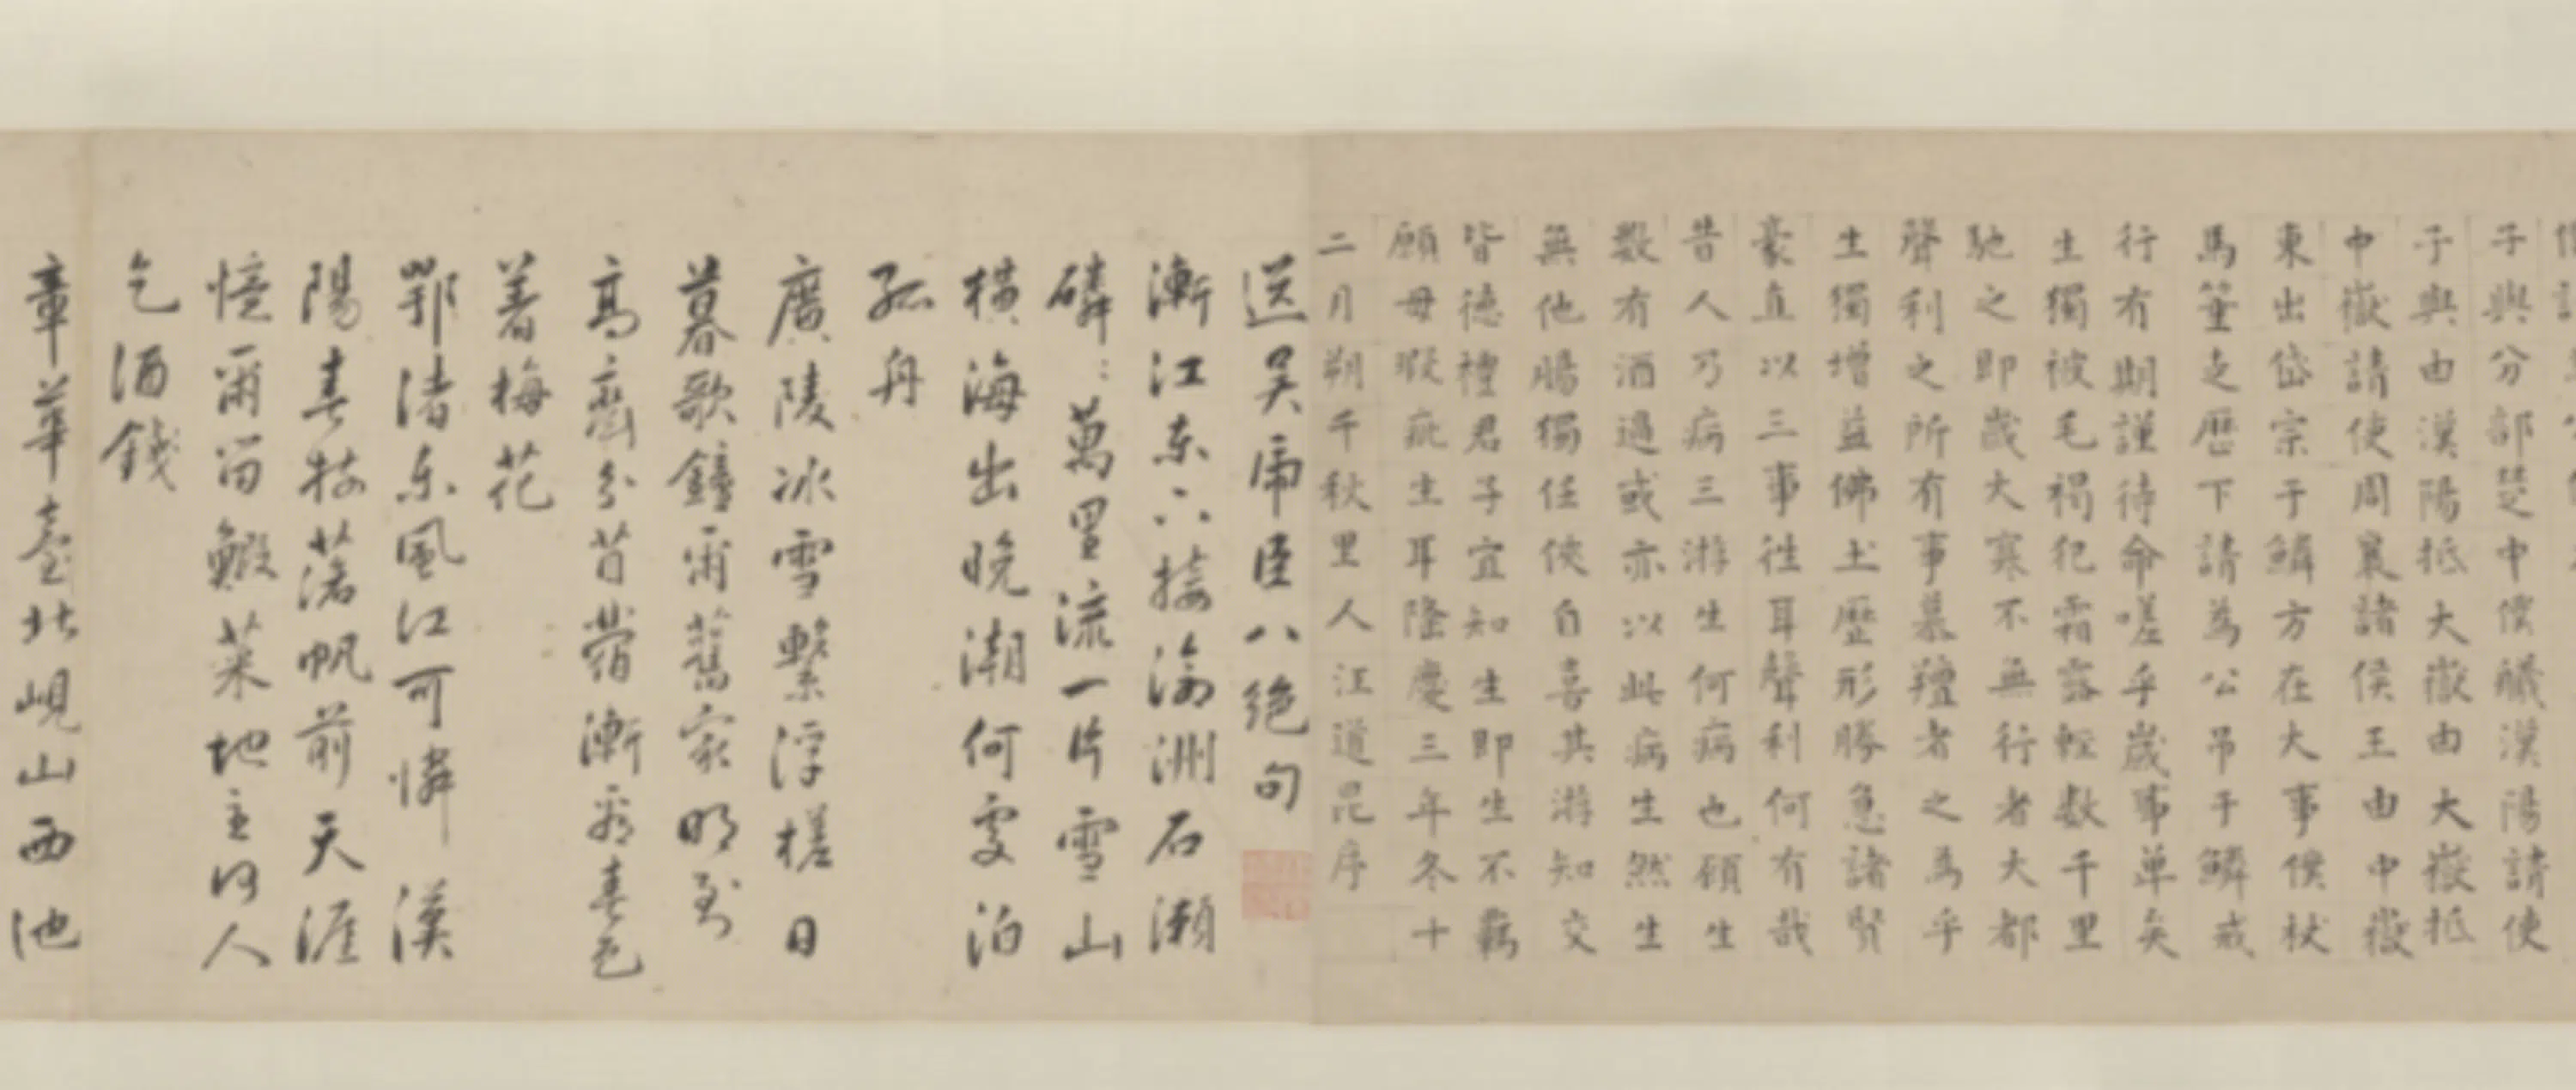 子與分部楚中僕艤漢陽請使
子與由漢陽抵大嶽由大嶽抵
中嶽請使周襄諸侯王由中嶽
東出岱宗于鱗方在大事僕杖
馬箠走歷下請為公吊于鱗戒
行有期謹待命嗟乎歲事單矣
生獨被毛褐犯霜露輕數千里
馳之即歲大寒不無行者大都
聲利之所有事慕羶者之為乎
生獨增益佛土歷形勝急諸賢
豪直以三事往耳聲利何有哉
昔人乃病三游生何病也顧生
數有酒過或亦以此病生然生
無他腸獨任俠自喜其游知交
皆德禮君子宜知生即生不羈
願毋瑕疵生耳隆慶三年冬十
二月朔千秋里人汪道昆序
送吳虎臣八絕句
漸江東下接滄洲石瀨
磷:萬里流一片雪山
橫海出晚潮何處泊
孤舟
廣陵冰雪繫浮槎日
暮歌鐘甭舊家明到
高齋分苜蓿漸看春色
著梅花
鄂渚東風江可憐漢
陽春樹落帆前天涯
憶爾留鰕菜地主何人
乞酒錢
章華臺北峴山西池